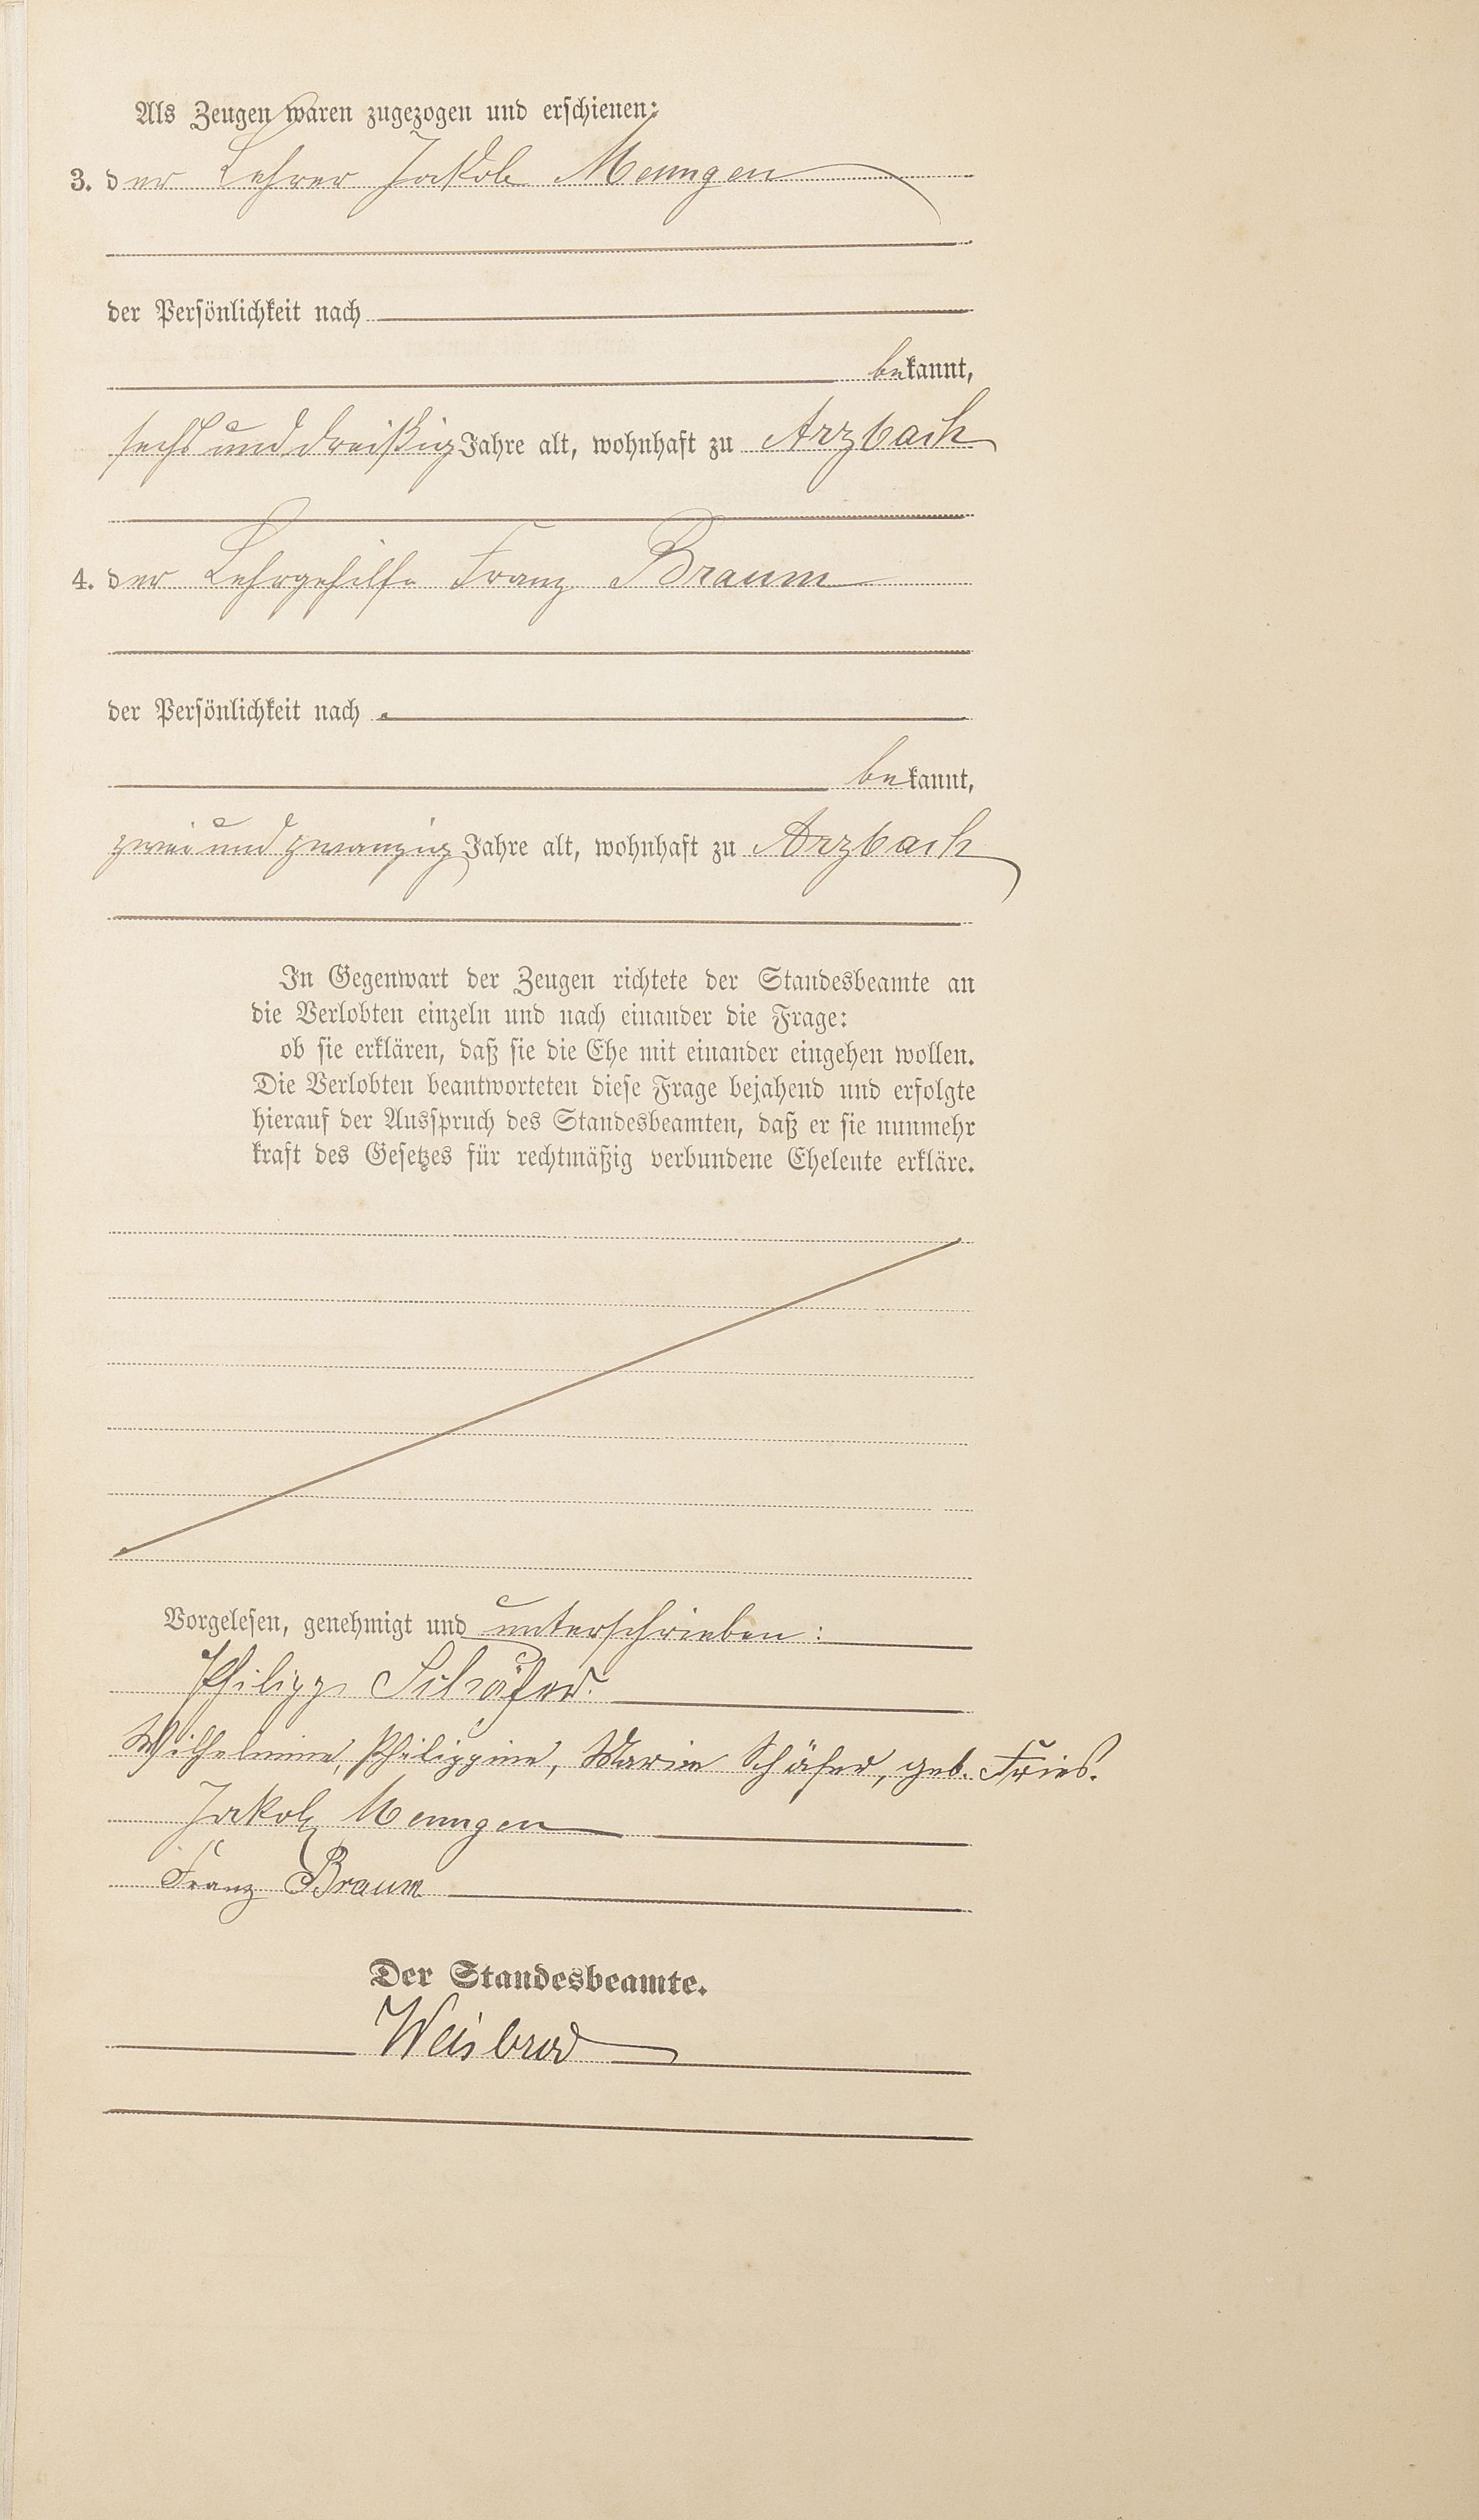 Als Zeugen waren zugezogen und erschienen:
3. der Lehrer Jakob Meungen
der Persönlichkeit nach
bekannt,
sechs und dreißig Jahre alt, wohnhaft zu Arzbach
4. der Lehrgehilfe Franz Braum
der Persönlichkeit nach
bekannt,
zwei und zwanzig Jahre alt, wohnhaft zu Arzbach
In Gegenwart der Zeugen richtete der Standesbeamte an
die Verlobten einzeln und nach einander die Frage:
ob sie erklären, daß sie die Ehe mit einander eingehen wollen.
Die Verlobten beantworteten diese Frage bejahend und erfolgte
hierauf der Ausspruch des Standesbeamten, daß er sie nunmehr
kraft des Gesetzes für rechtmäßig verbundene Eheleute erkläre.
Vorgelesen, genehmigt und unterschrieben:
Philipp Schäfer.
Wilhelmine, Philippine, Marie Schäfer, geb. Fries.
Jakob Meungen
Franz Braum
Der Standesbeamte.
Weisbrod